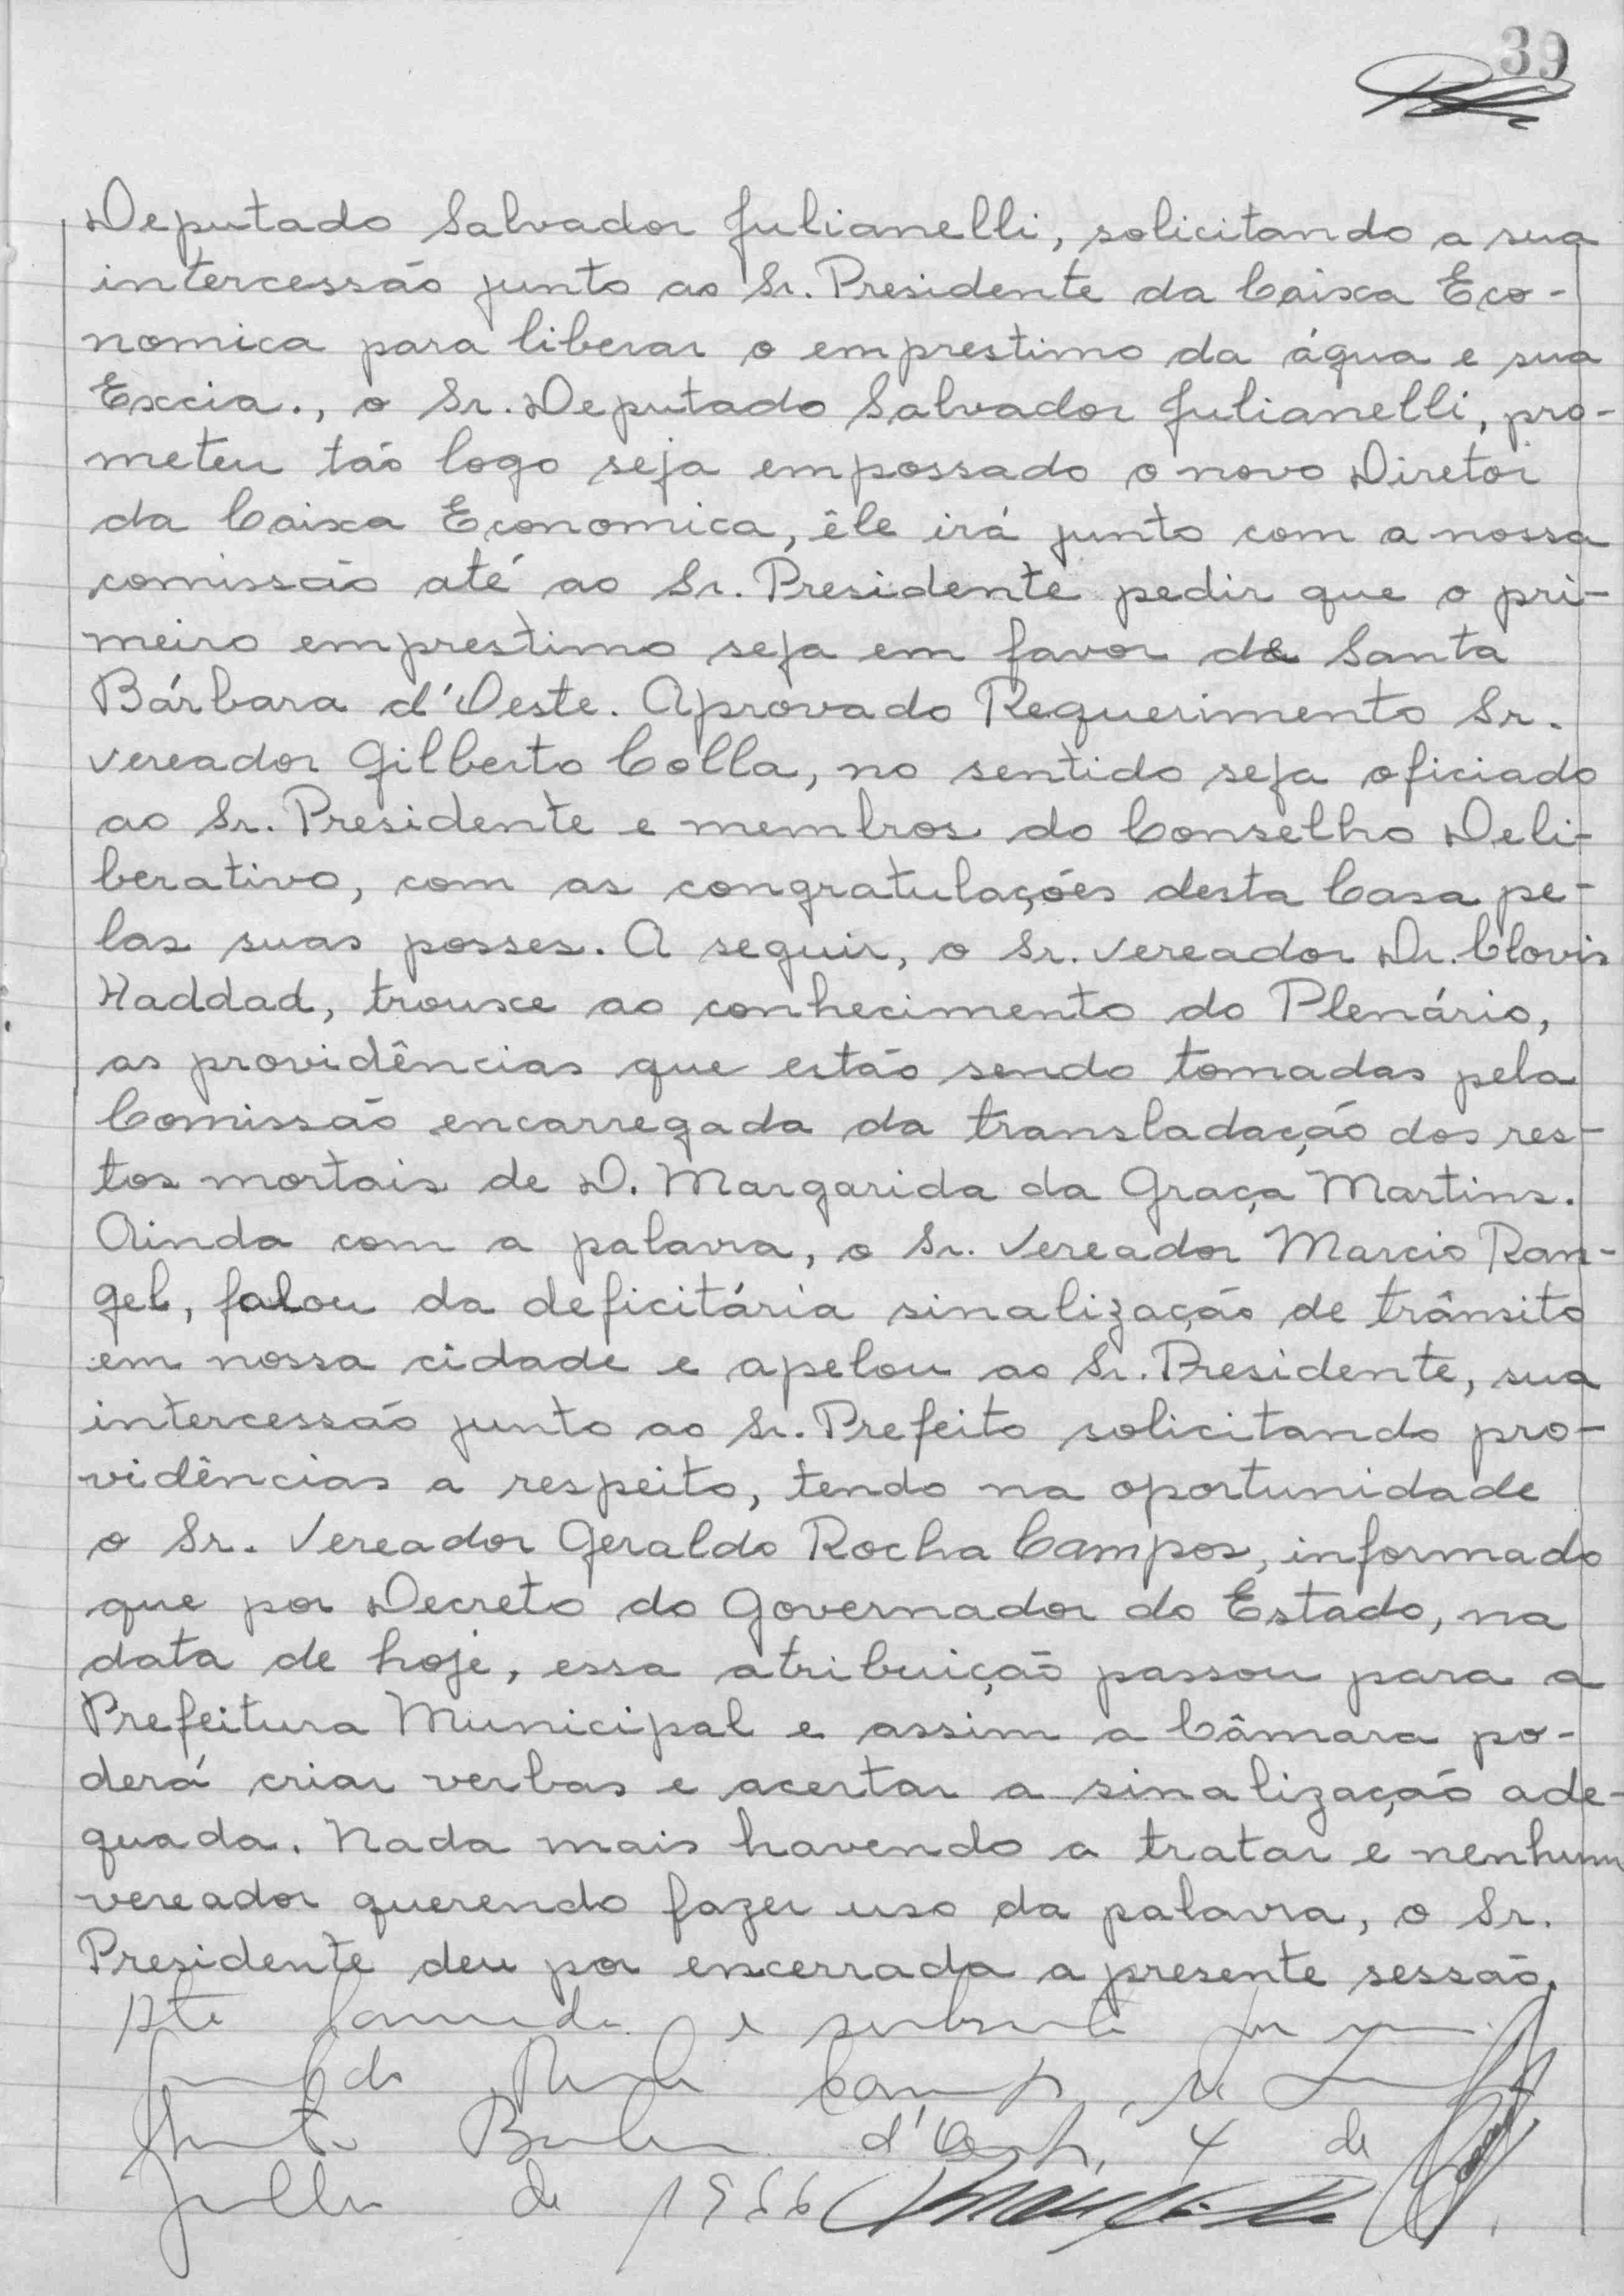 39
Deputado Salvador Julianelli, solicitando a sua
intercessão junto ao Sr. Presidente da Caixa Eco-
nomica para liberar o emprestimo da água e sua
Excia., o Sr. Deputado Salvador Julianelli, pro-
meteu tão logo seja empossado o novo Diretor
da Caixa Economica, êle irá junto com a nossa
comissão até ao Sr. Presidente pedir que o pri-
meiro emprestimo seja em favor de Santa
Bárbara d'Oeste. Aprovado Requerimento Sr.
vereador Gilberto Colla, no sentido seja oficiado
ao Sr. Presidente e membros do Conselho Deli-
berativo, com as congratulações desta Casa pe-
las suas posses. A seguir, o Sr. vereador Dr. Clovis
Haddad, trouxe ao conhecimento do Plenário,
as providências que estão sendo tomadas pela
Comissão encarregada da transladação dos res-
tos mortais de D. Margarida da Graça Martins.
Ainda com a palavra, o Sr. Vereador Marcio Ran-
gel, falou da deficitária sinalização de trânsito
em nossa cidade e apelou ao Sr. Presidente, sua
intercessão junto ao Sr. Prefeito solicitando pro-
vidências a respeito, tendo na oportunidade
o Sr. Vereador Geraldo Rocha Campos, informado
que por Decreto do Governador do Estado, na
data de hoje, essa atribuição passou para a
Prefeitura Municipal e assim a Câmara po-
derá criar verbas e acertar a sinalização ade-
quada. Nada mais havendo a tratar e nenhum
vereador querendo fazer uso da palavra, o Sr.
Presidente deu por encerrada a presente sessão.
e
Geraldo Rocha Campos
Santa Barbara d'Oeste, 4 de
Julho de 1966